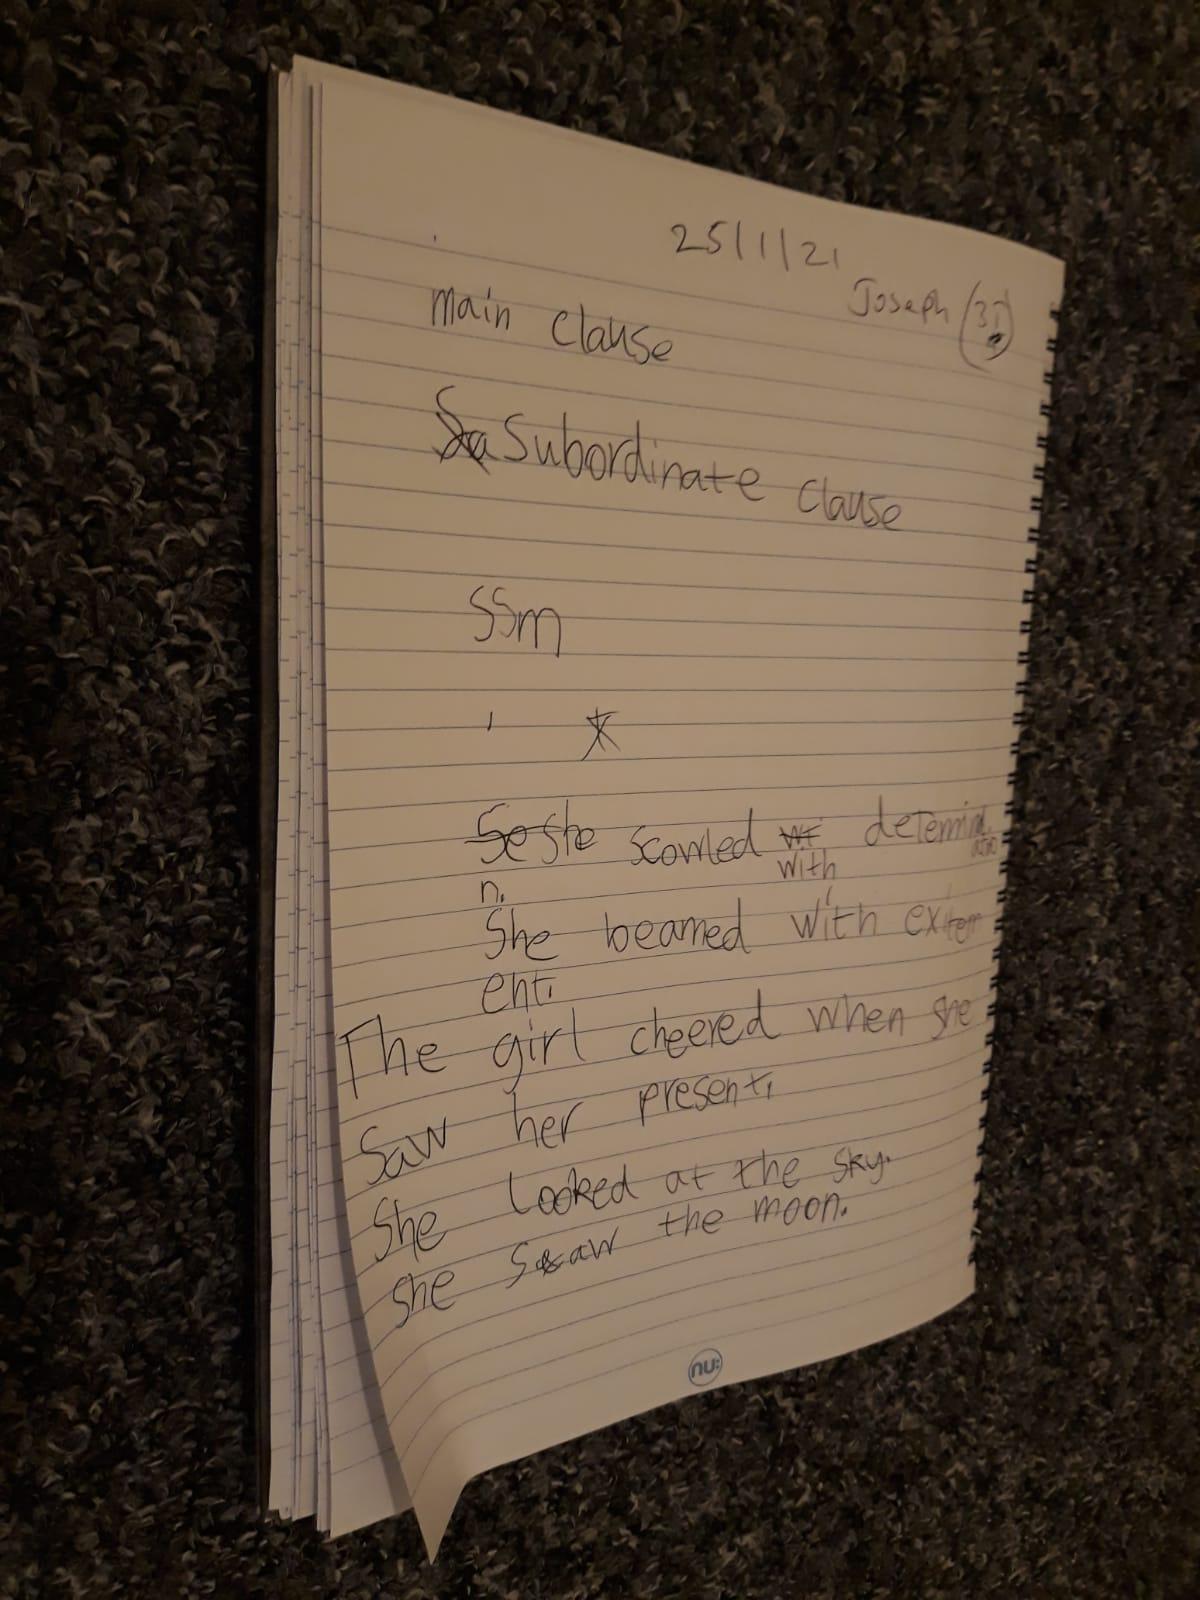 25/1/21
Joseph (3J)
main clause
Subordinate clause
SSm
, *
She scowled with determination
n.
She beamed with exitem
ent.
The girl cheered when she
saw her present.
She looked at the sky.
She saw the moon.
nu: